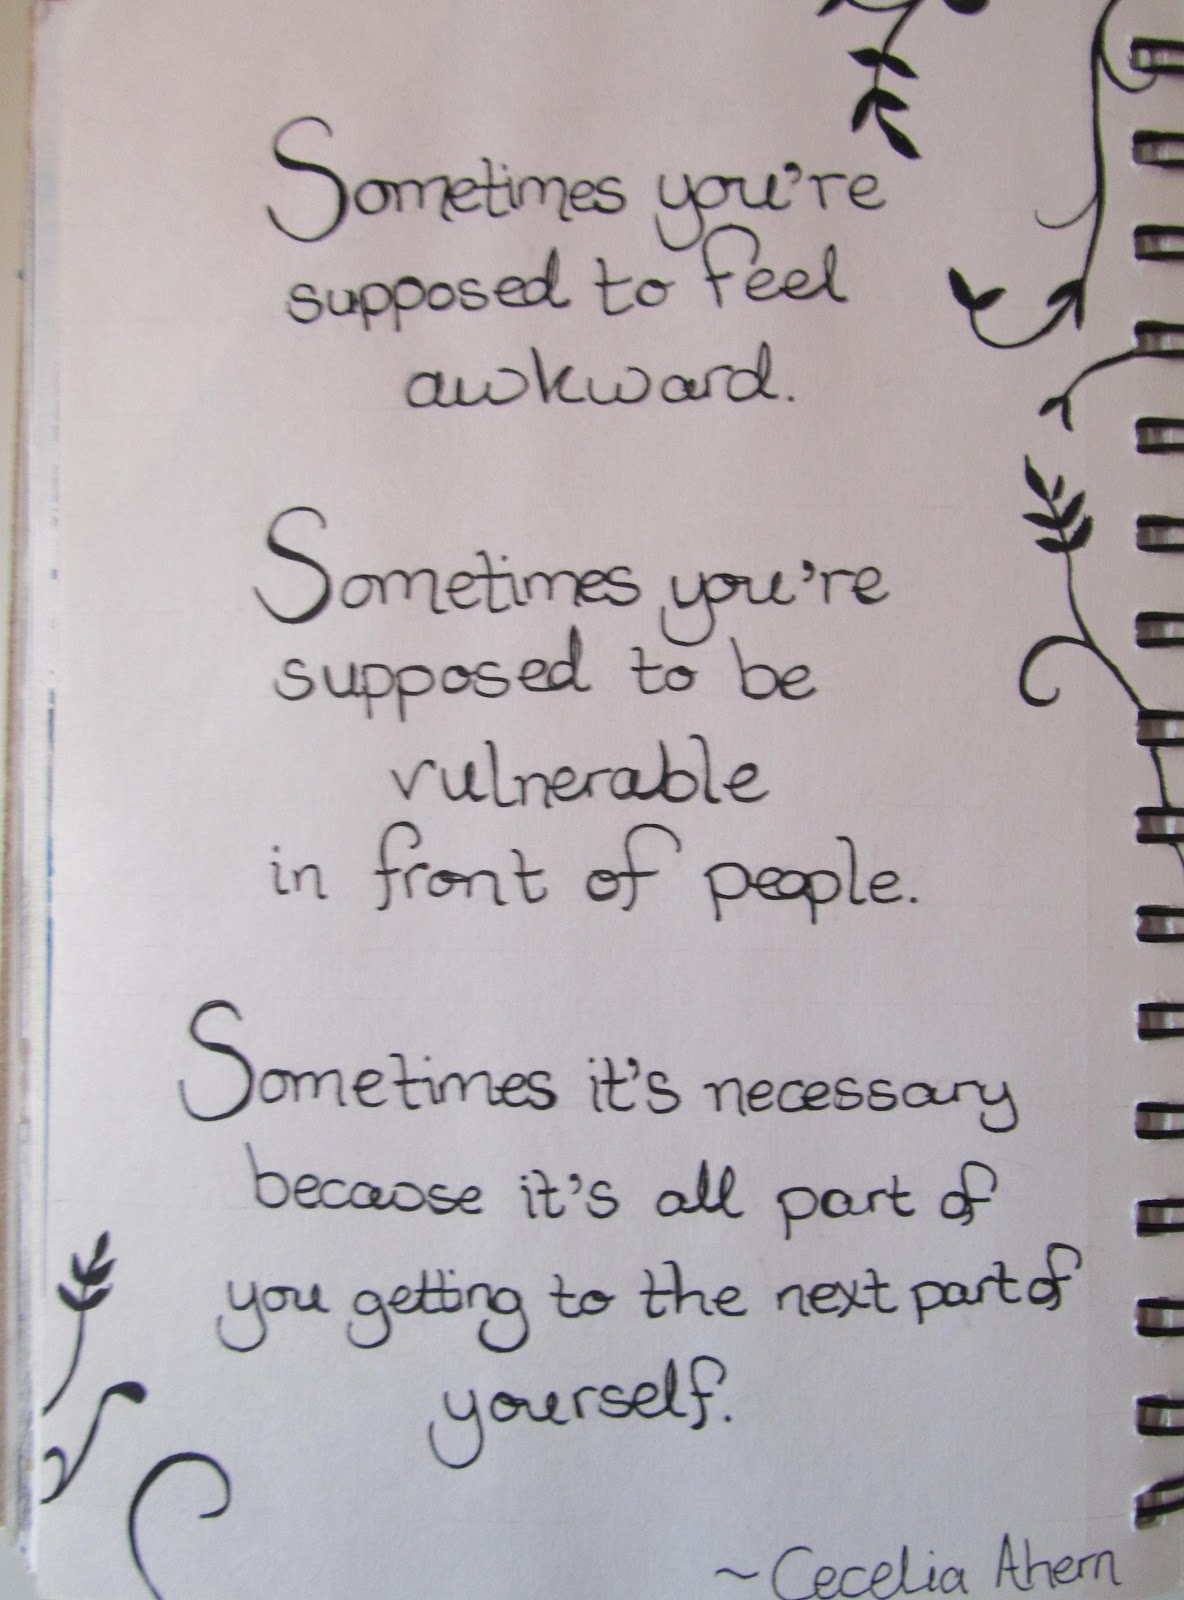 Sometimes you're
supposed to feel
awkward.
Sometimes you're
supposed to be
vulnerable
in front of people.
Sometimes it's necessary
because it's all part of
you getting to the next part of
yourself.
~Cecelia Ahern